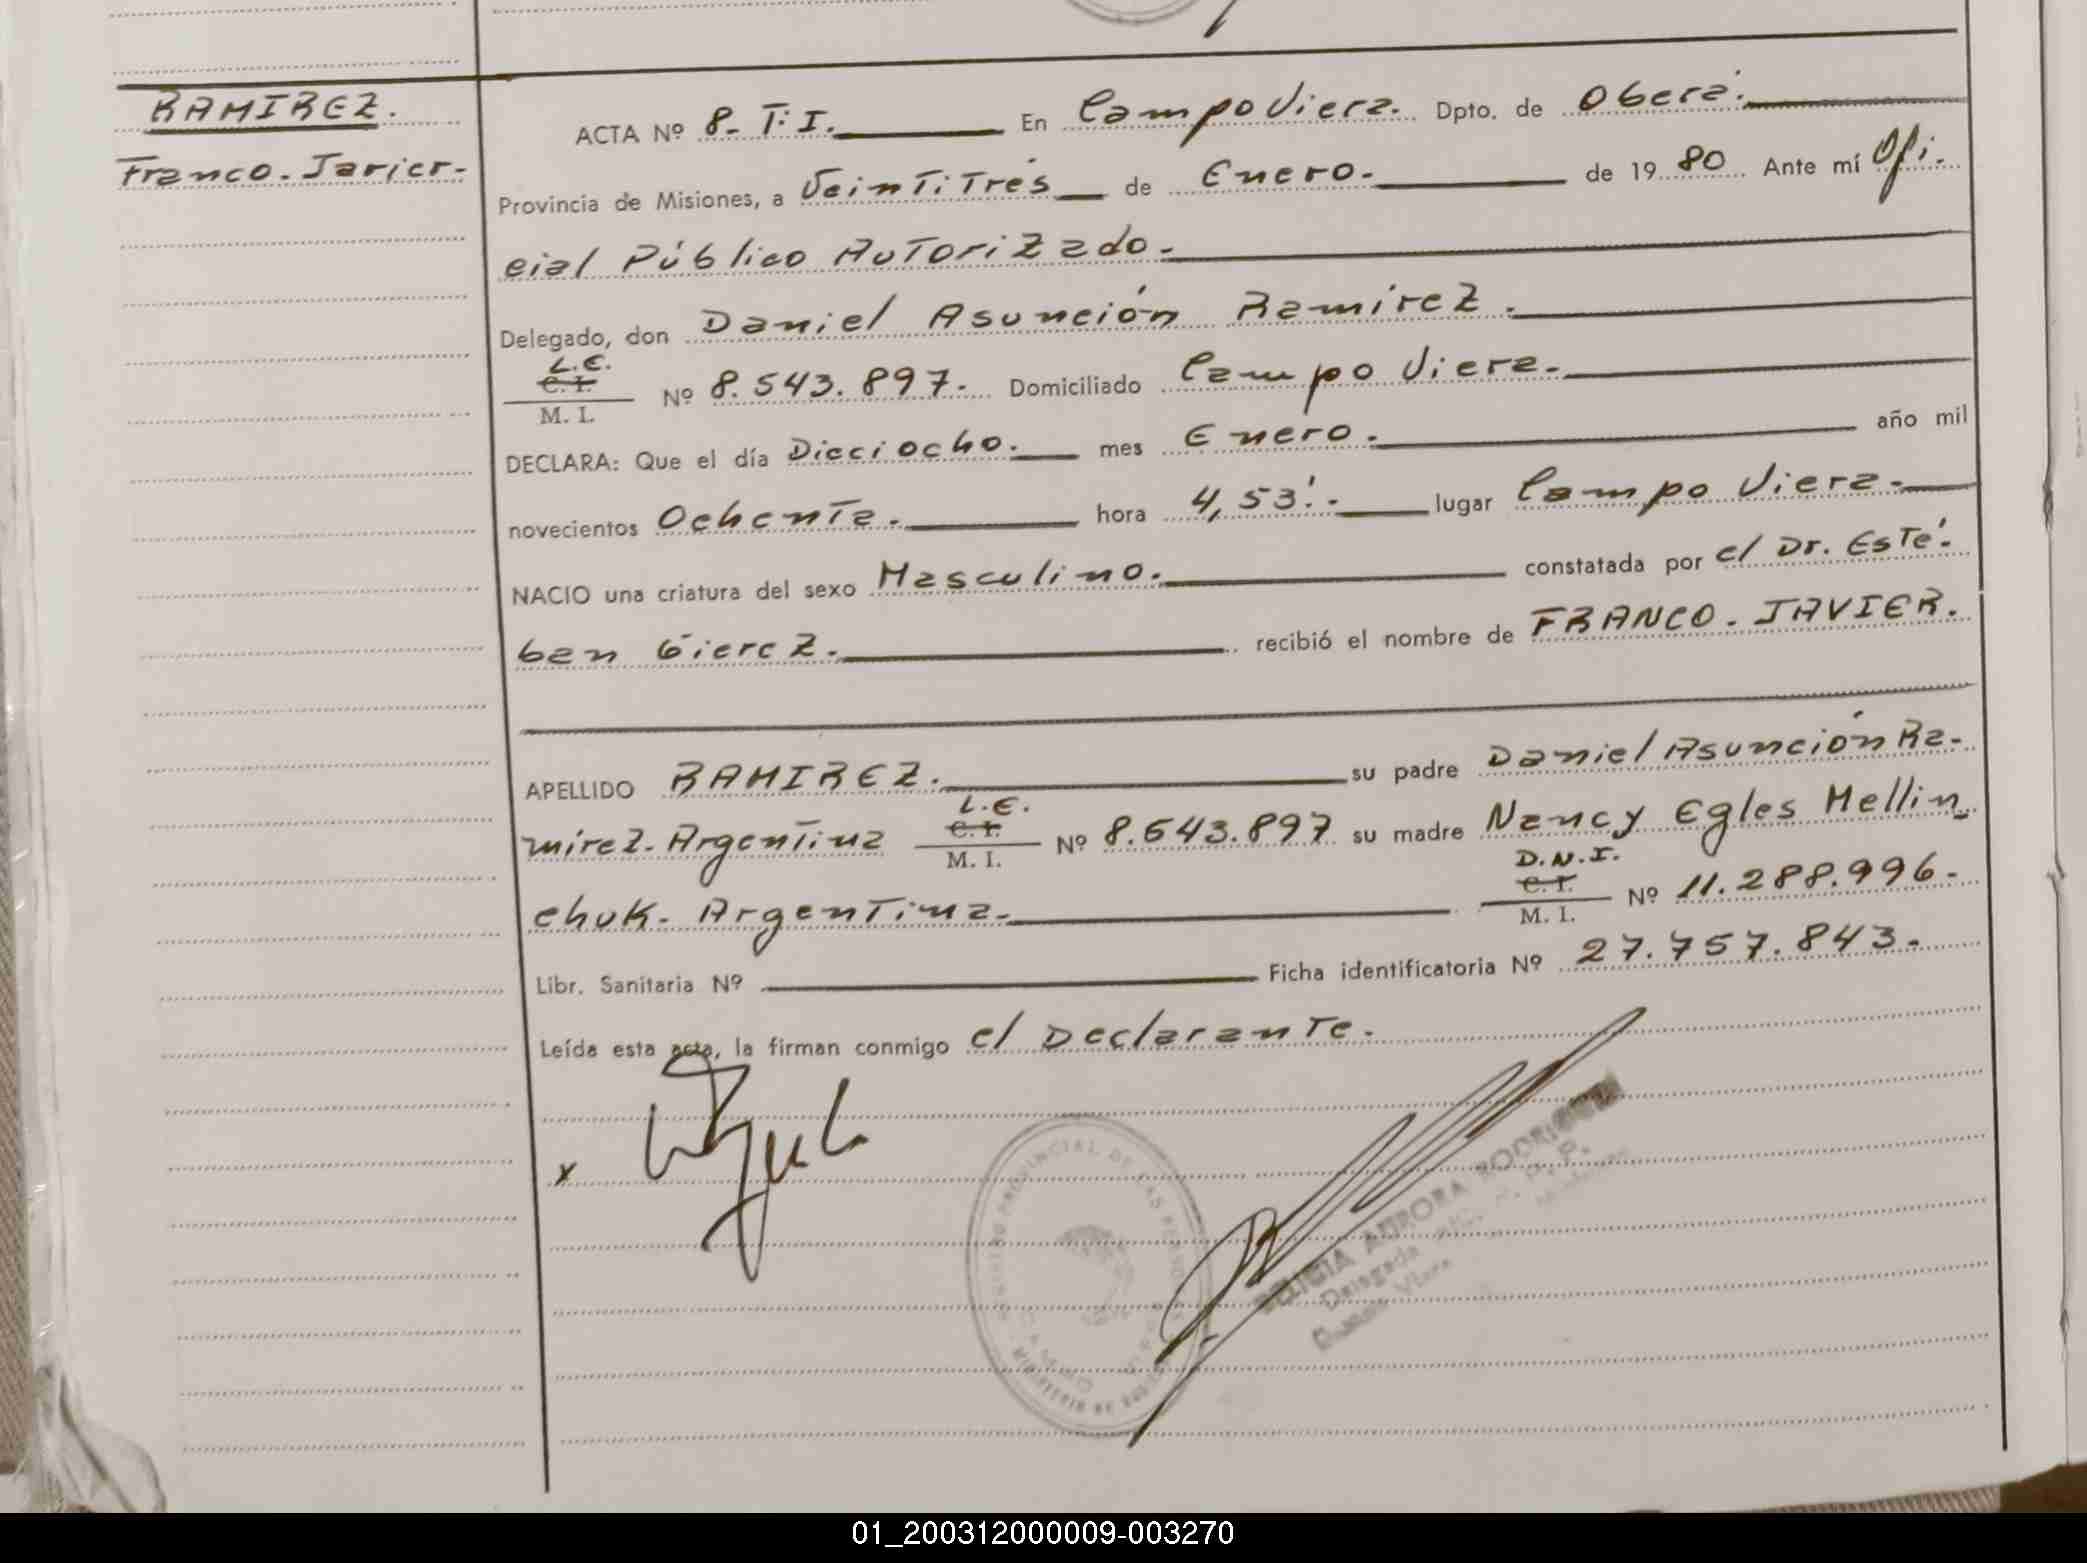 RAMIREZ.
Franco. Javier-
ACTA Nº 8- T.I. En Campo Viera. Dpto. de Oberá.
Provincia de Misiones, a Veintitrés de Enero. de 1980 Ante mí Ofi.
cial Público Autorizado.
Delegado, don Daniel Asunción Ramírez.
L.E.
C. I.
M. I.
Nº 8.543.897. Domiciliado Campo Viera.
DECLARA: Que el día Dieciocho. mes Enero. año mil
novecientos Ochenta. hora 4,53'.- lugar Campo Viera.
NACIO una criatura del sexo Masculino. constatada por el Dr. Esté.
ban Gierez. recibió el nombre de FRANCO. JAVIER.
APELLIDO RAMIREZ. su padre Daniel Asunción Ra-
mírez. Argentina
L.E.
C. I.
M. I.
Nº 8.543.897 su madre Nancy Egles Mellin
chuk. Argentina.
D.N.I.
C. I.
M. I.
Nº 11.288.996.
Libr. Sanitaria Nº Ficha identificatoria Nº 27.757.843.
Leída esta acta, la firman conmigo el Declarante.
x
REGISTRO PROVINCIAL DE LAS PERSONAS
AURORA RODRIGUEZ
Delegada
Campo Viera
01_200312000009-003270